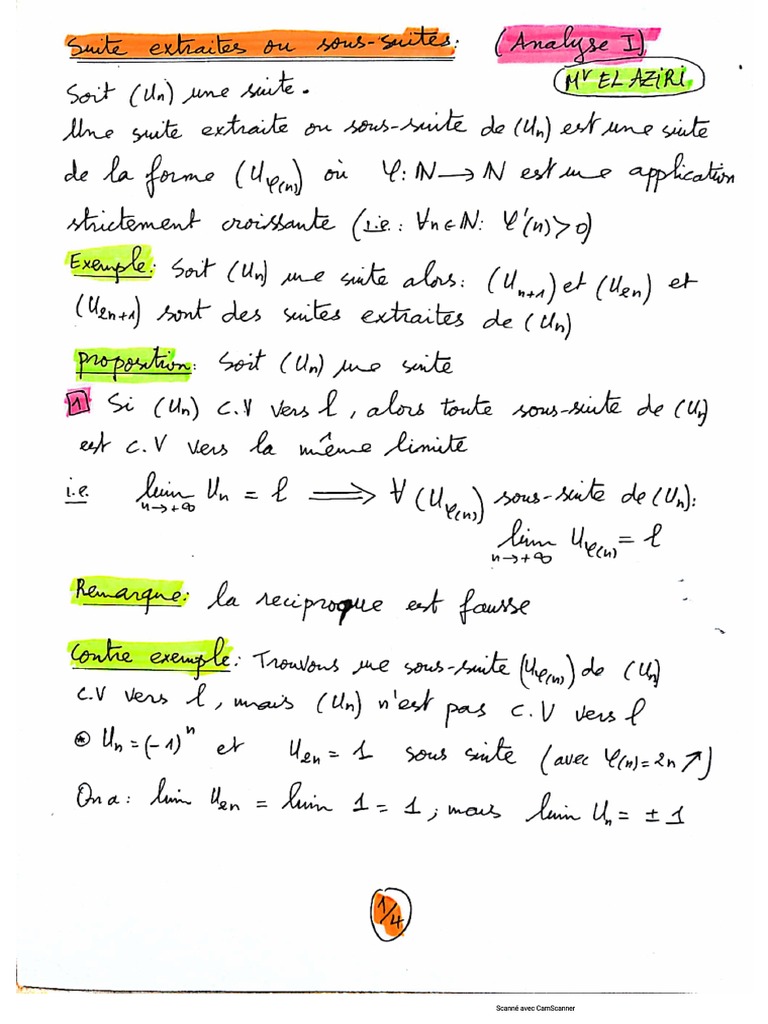 Suite extraites ou sous-suites: (Analyse I)
Mr EL AZIRI
Soit (Un) une suite.
Une suite extraite ou sous-suite de (Un) est une suite
de la forme (Uφ(n)) où φ: ℕ → ℕ est une application
strictement croissante (i.e.: ∀n∈ℕ: φ'(n)>0)
Exemple: Soit (Un) une suite alors: (Un+1) et (U2n) et
(U2n+1) sont des suites extraites de (Un)
proposition: Soit (Un) une suite
1 Si (Un) C.V vers l, alors toute sous-suite de (Un)
est C.V vers la même limite
i.e. lim Un = l ⟹ ∀ (Uφ(n)) sous-suite de (Un):
n→+∞
lim Uφ(n) = l
n→+∞
Remarque: la reciproque est fausse
Contre exemple: Trouvons une sous-suite (Uφ(n)) de (Un)
C.V vers l, mais (Un) n'est pas C.V vers l
⊛ Un = (-1)^n et U2n = 1 sous suite (avec φ(n)=2n ↗)
On a: lim U2n = lim 1 = 1, mais lim Un = ± 1
1/4
Scanné avec CamScanner